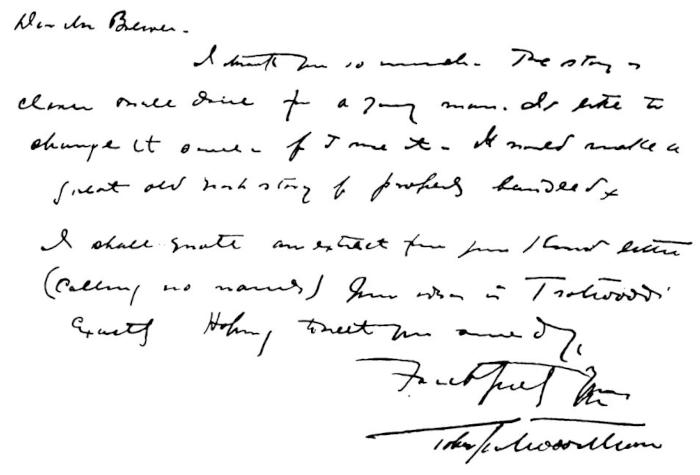 Dear Mr Brewer.
I thank you so much. The story is
clever well done for a young man. I'd like to
change it some if I use it. It would make a
great old story if properly handled
I shall quote an extract from your kind letter
(Calling no names) Your idea is Trotwood's
Exactly Hoping to meet you some day,
Faithfully Yours
John Trotwood Moore